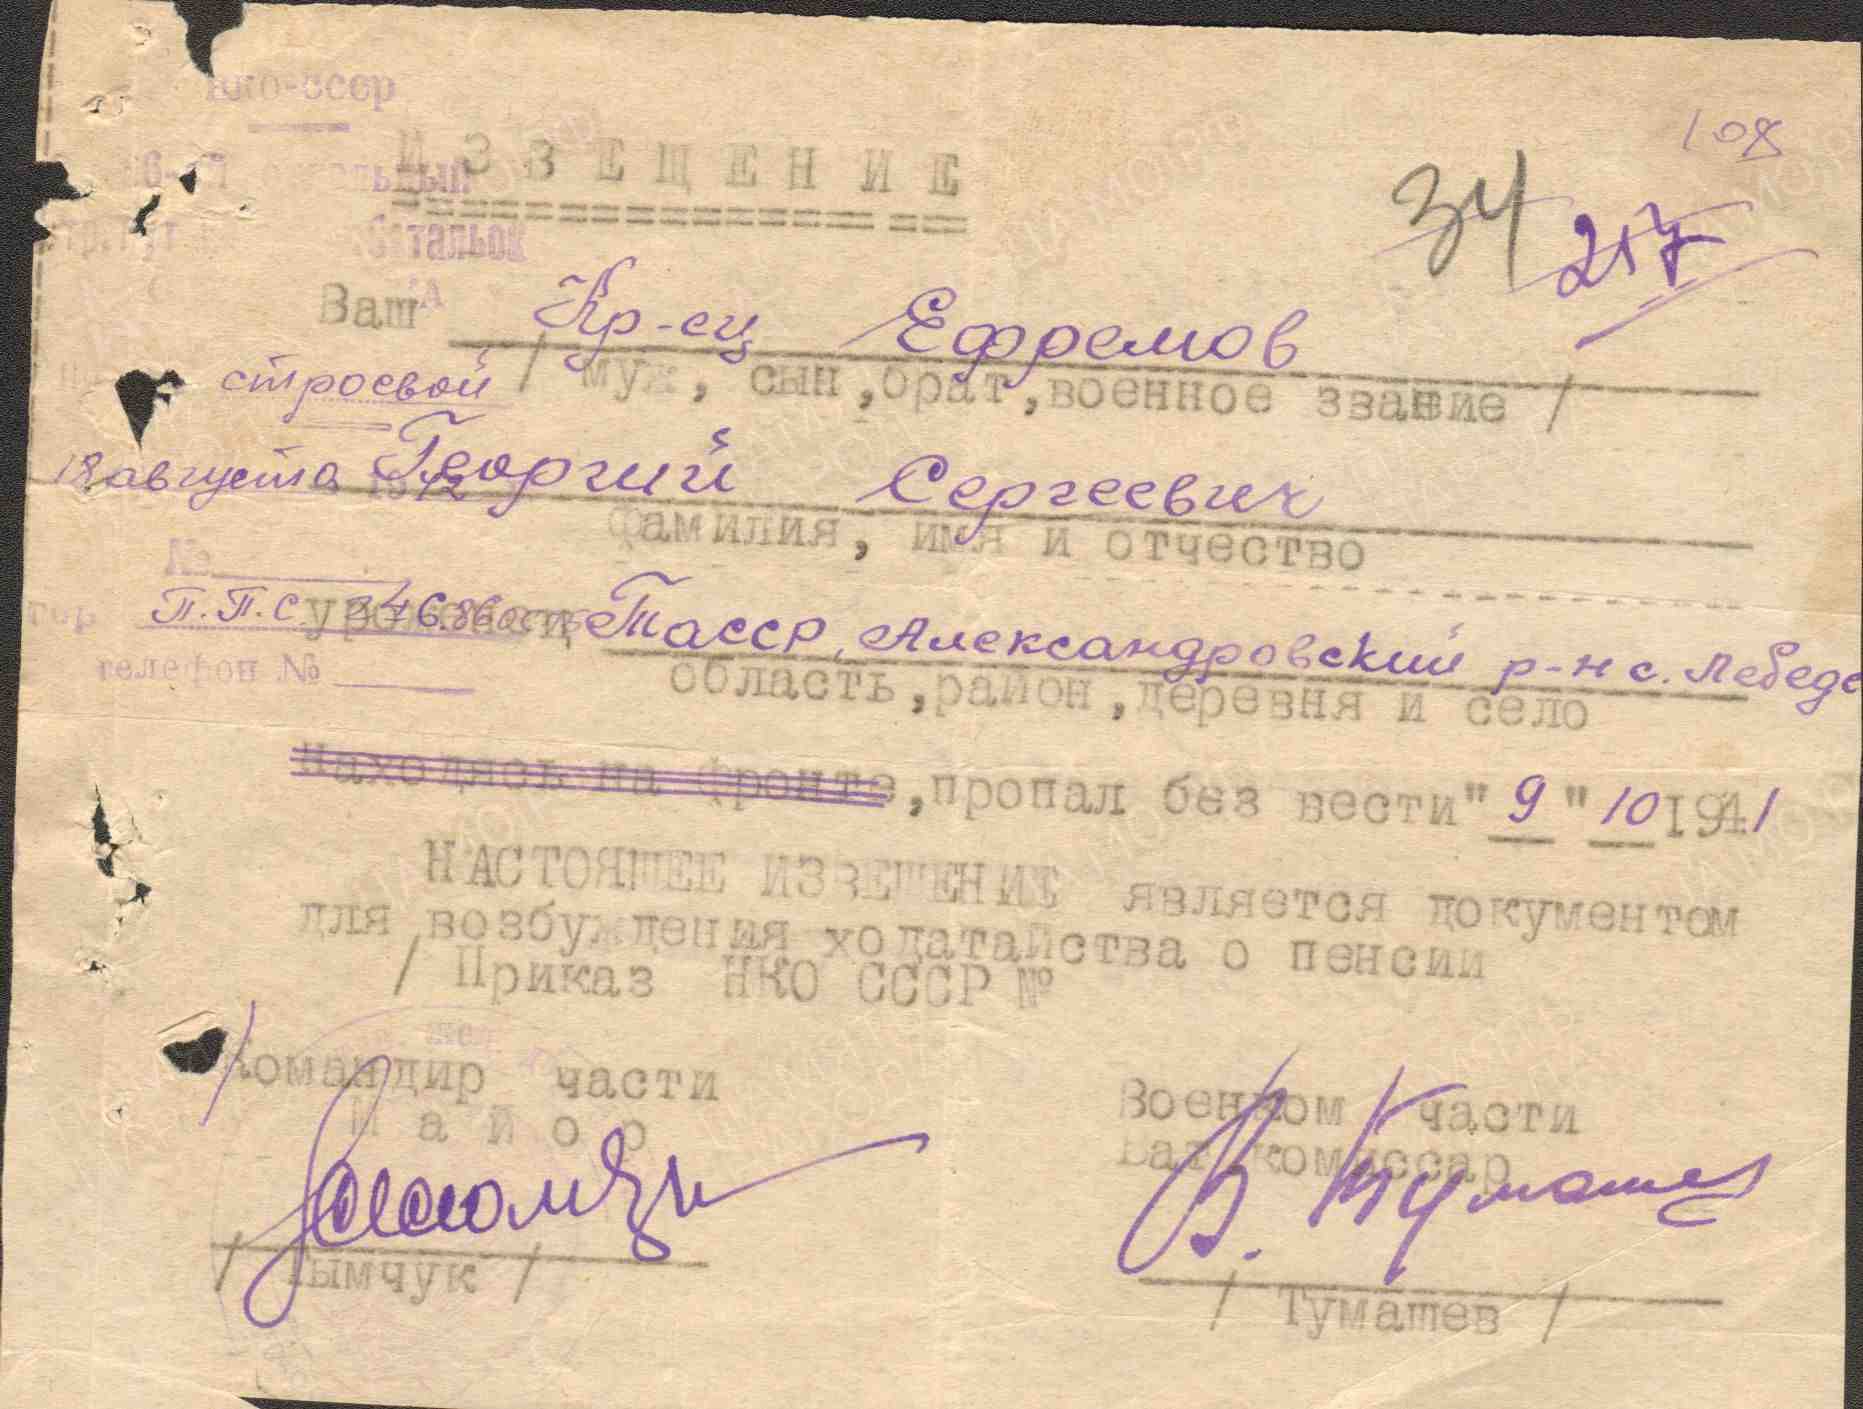 НКО-СССР
ИЗВЕЩЕНИЕ
108
34
217
батальон
Ваш Кр-ец Ефремов
строевой / муж, сын, брат, военное звание /
18 августа 1942
Георгий Сергеевич
фамилия, имя и отчество
№
П.П.С.
уроженец ТАССР, Александровский р-н с. Лебеде
телефон №
область, район, деревня и село
находясь на фронте, пропал без вести "9" 10 1941
НАСТОЯЩЕЕ ИЗВЕЩЕНИЕ является документом
для возбуждения ходатайства о пенсии
/ Приказ НКО СССР №
Командир части
Майор
Военком части
Бат комиссар
В. Тумашев
/ Тумашев /